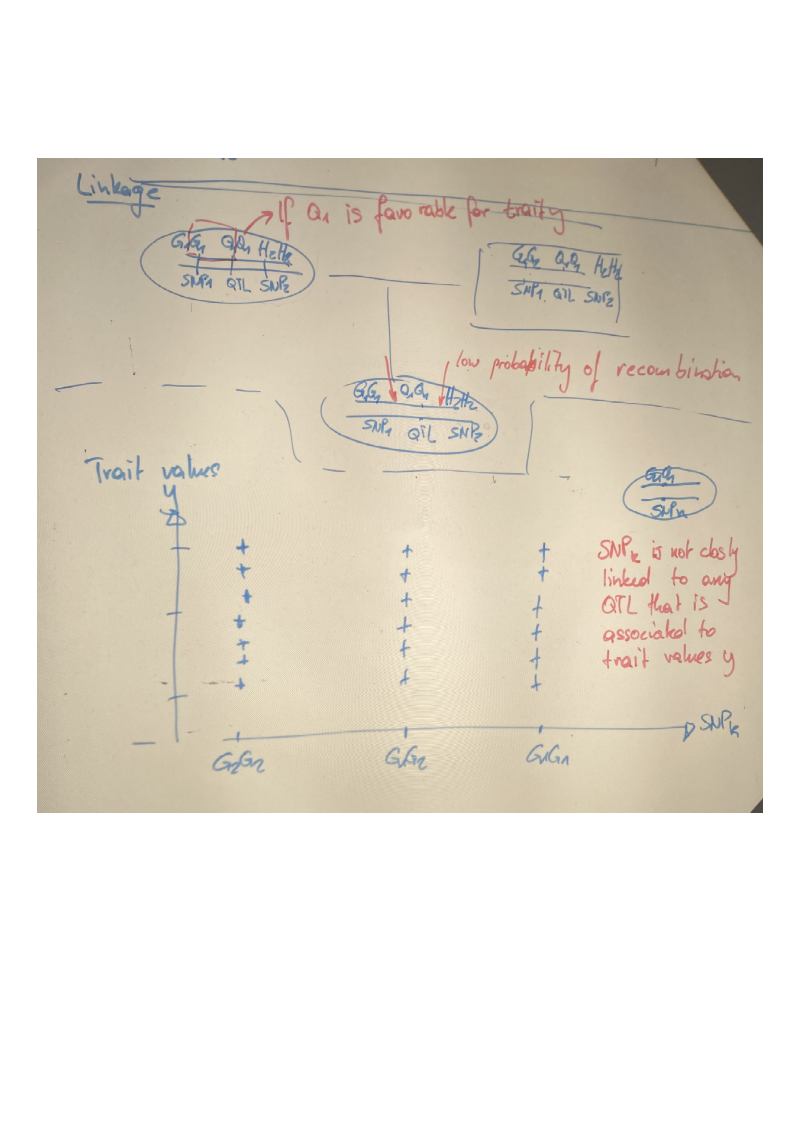 Linkage
If Q1 is favorable for trait y
G1G1 Q1Q1 H2H2
SNP1 QTL SNP2
Q1Q1 H2H2
SNP1 QTL SNP2
low probability of recombination
G1G1 Q1Q1 H2H2
SNP1 QTL SNP2
Trait values
y
SNPk
SNPk is not closly
linked to any
QTL that is
associated to
trait values y
SNPk
G2G2 G1G2 G1G1